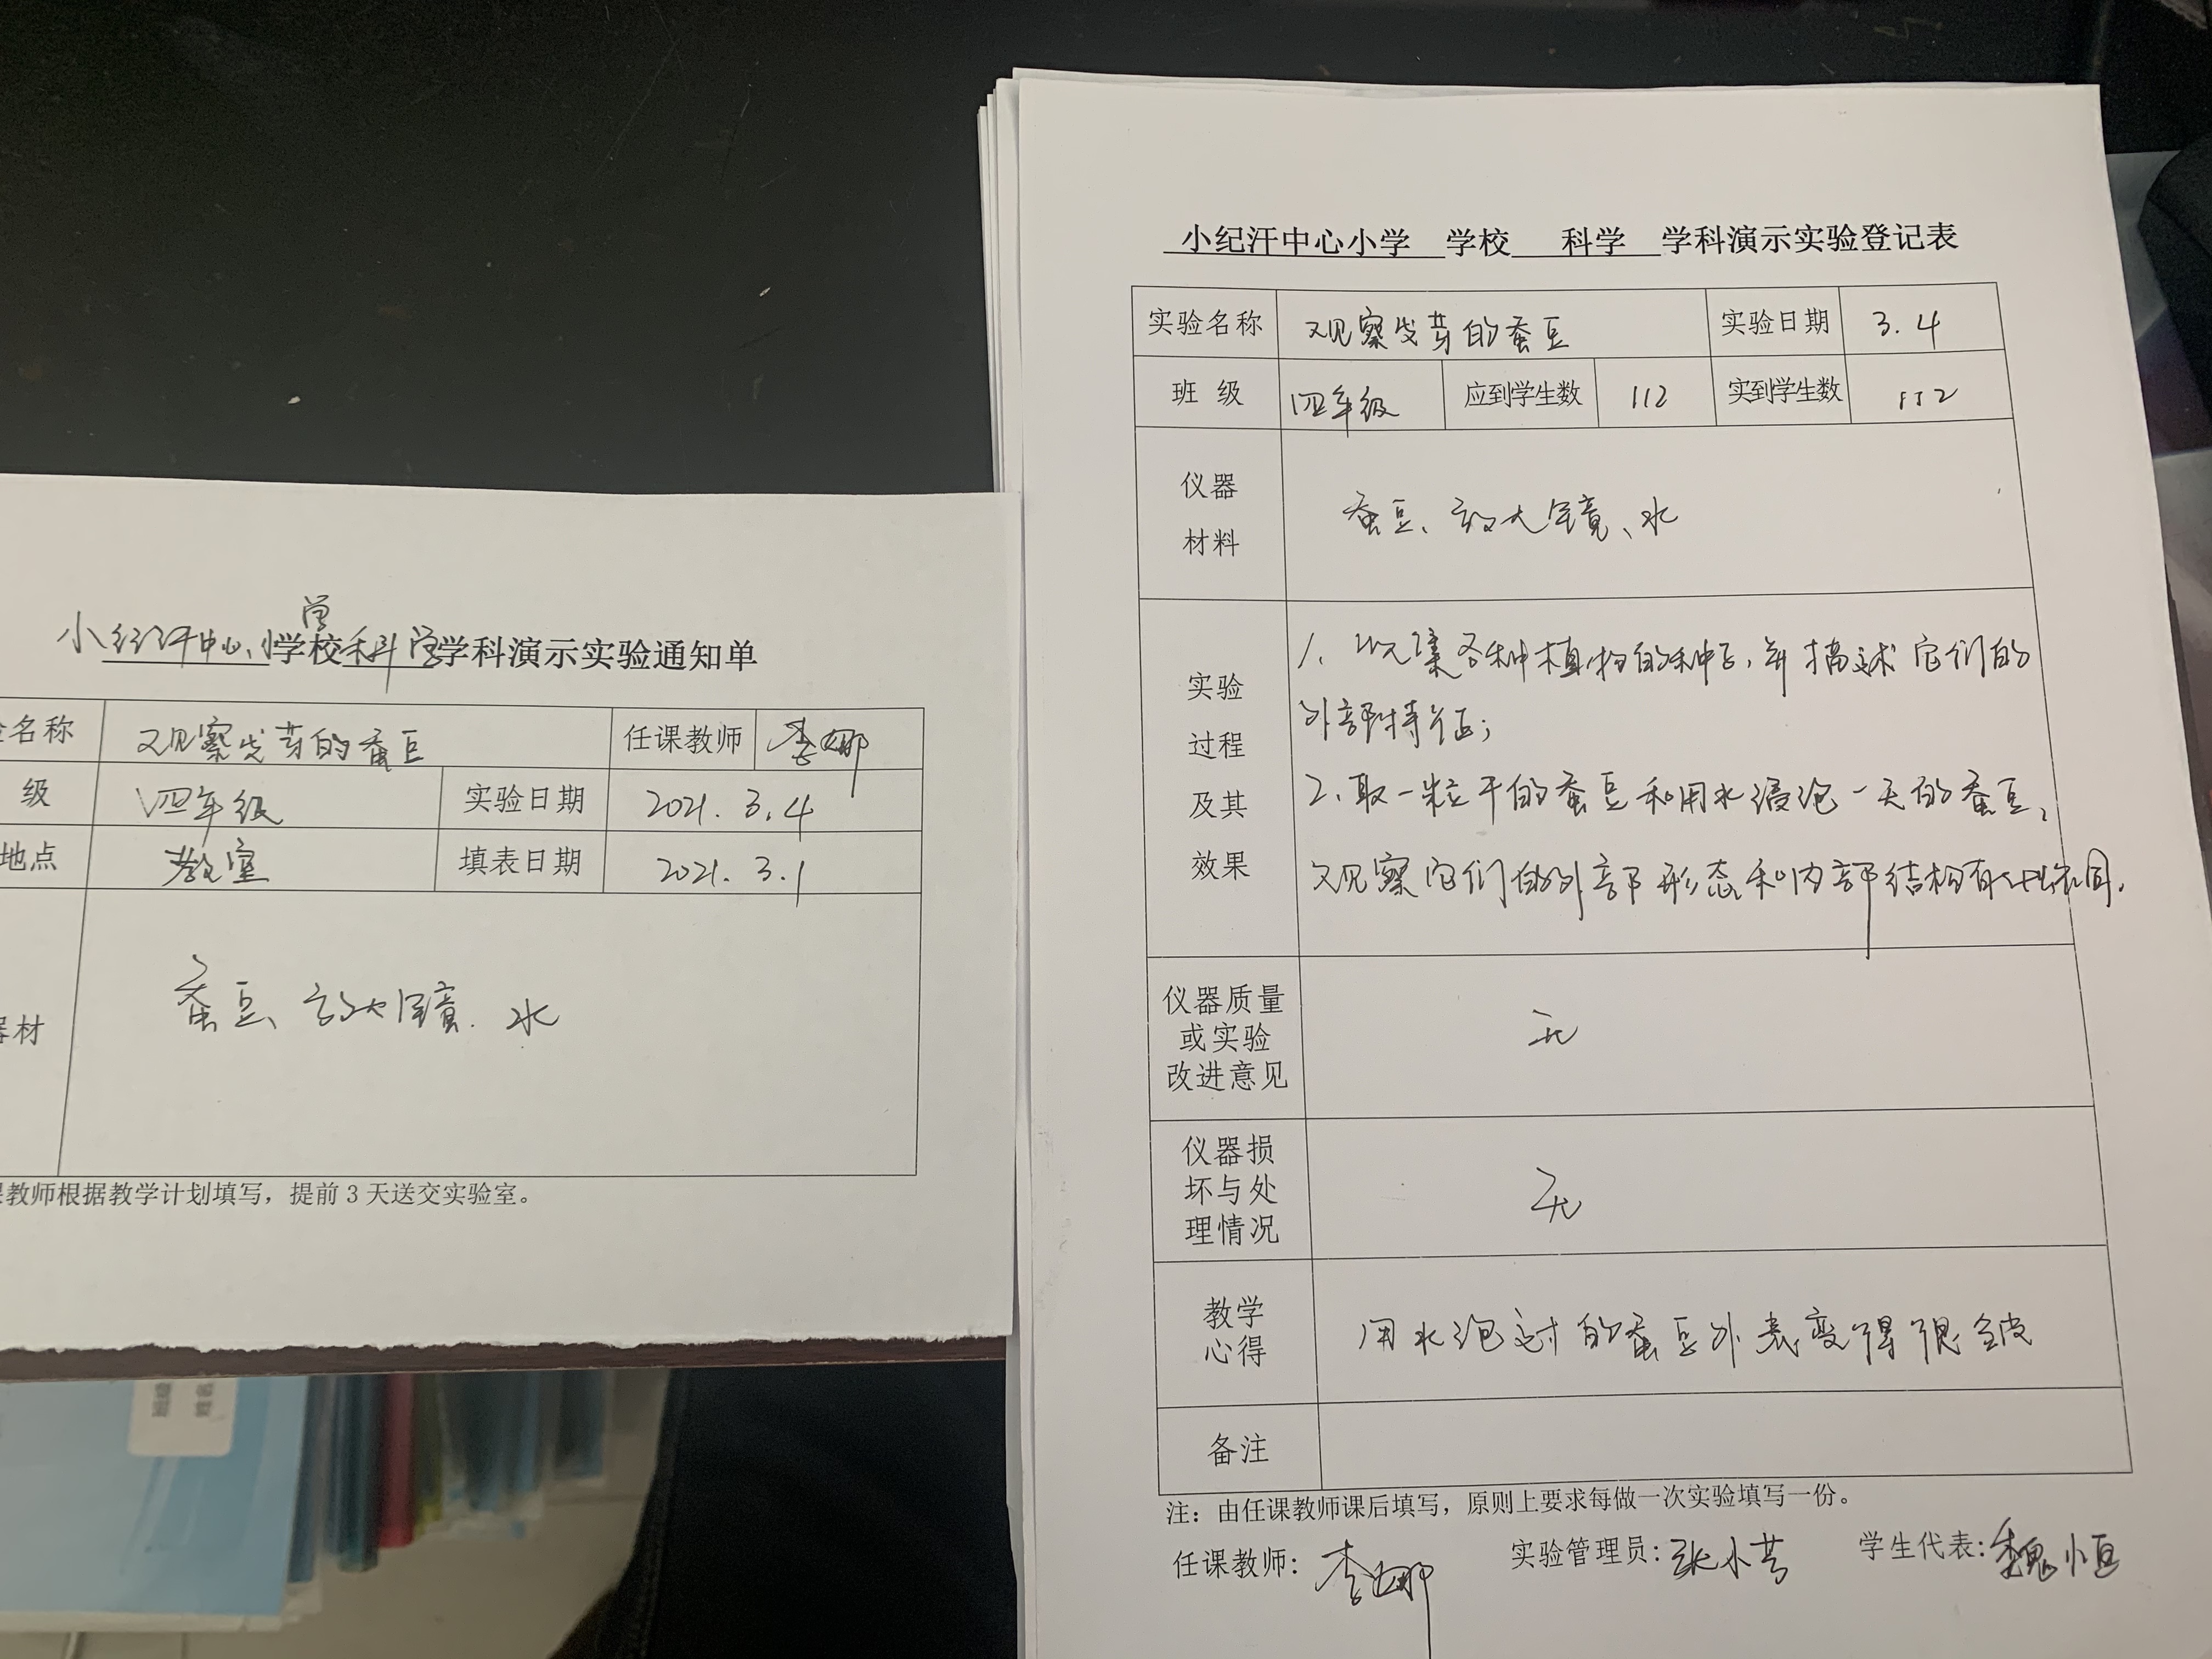 小纪汗中心小学校科学学科演示实验通知单
学
名称 观察发芽的蚕豆 任课教师 李娜
级 四年级 实验日期 2021.3.4
地点 教室 填表日期 2021.3.1
器材 蚕豆、放大镜、水
课教师根据教学计划填写，提前3天送交实验室。
小纪汗中心小学 学校 科学 学科演示实验登记表
实验名称 观察发芽的蚕豆 实验日期 3.4
班 级 四年级 应到学生数 112 实到学生数 112
仪器
材料
蚕豆、放大镜、水
实验
过程
及其
效果
1、收集各种植物的种子，并描述它们的
外部特征；
2、取一粒干的蚕豆和用水浸泡一天的蚕豆，
观察它们的外部形态和内部结构有什么不同。
仪器质量
或实验
改进意见
无
仪器损
坏与处
理情况
无
教学
心得
用水泡过的蚕豆外表变得很皱
备注
注：由任课教师课后填写，原则上要求每做一次实验填写一份。
任课教师：李娜 实验管理员：张小芳 学生代表：魏恒
班级
姓名